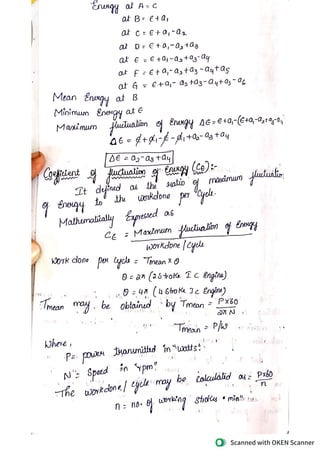 Energy at A = E
at B = E + a₁
at C = E + a₁ - a₂
at D = E + a₁ - a₂ + a₃
at E = E + a₁ - a₂ + a₃ - a₄
at F = E + a₁ - a₂ + a₃ - a₄ + a₅
at G = E + a₁ - a₂ + a₃ - a₄ + a₅ - a₆
Mean Energy at B
Minimum Energy at E
Maximum fluctuation of Energy ΔE = E + a₁ - (E + a₁ - a₂ + a₃ - a₄)
ΔE = E + a₁ - E - a₁ + a₂ - a₃ + a₄
ΔE = a₂ - a₃ + a₄
Coefficient of fluctuation of Energy (CE) :-
It defined as the ratio of maximum fluctuation
of Energy to the workdone per cycle.
Mathematially Expressed as
CE = Maximum fluctuation of Energy
workdone / cycle
Work done per cycle = Tmean x θ
θ = 2π (2 stroke I.C Engine)
θ = 4π (4 stroke I.C Engine)
Tmean may be obtained by Tmean = P x 60
2π N
Tmean = P/ω
Where,
P = power transmitted in "watts".
N = Speed in "rpm"
The workdone / cycle may be calculated as = P x 60
n
n = no. of working strokes
Scanned with OKEN Scanner